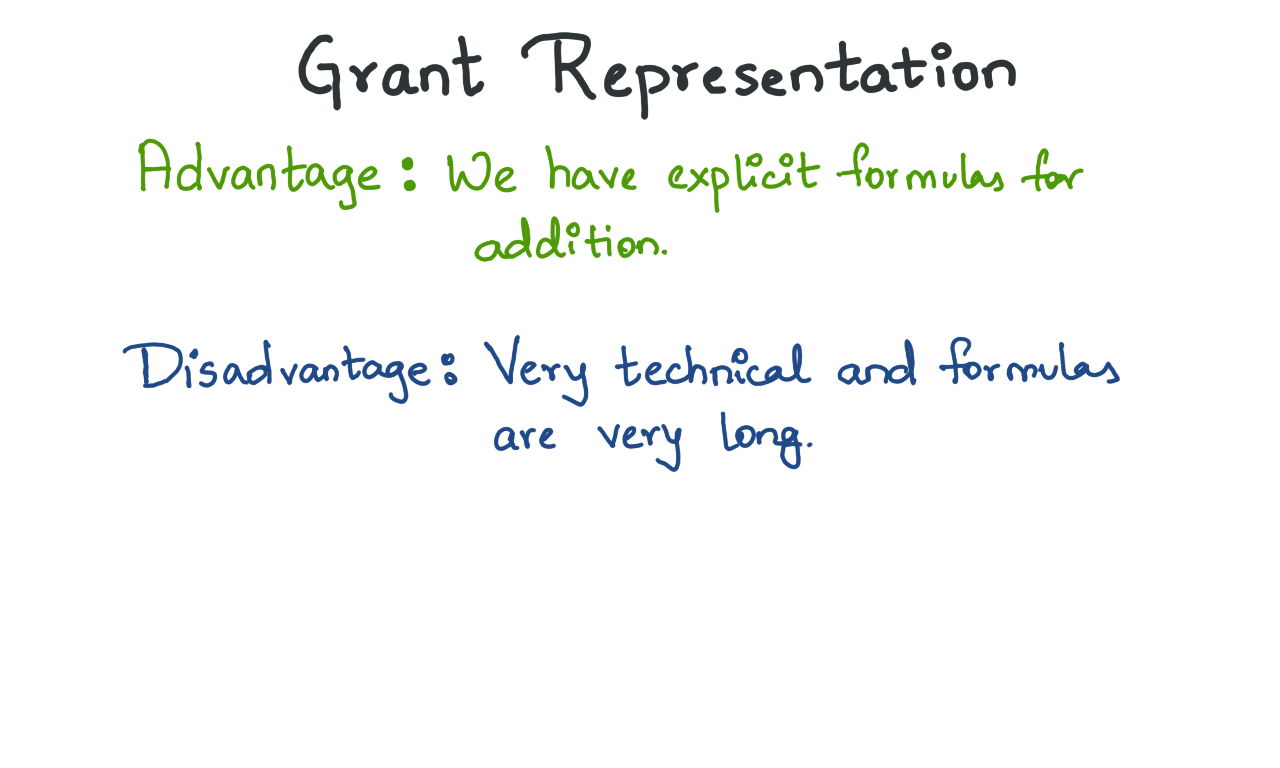 Grant Representation
Advantage: We have explicit formulas for
addition.
Disadvantage: Very technical and formulas
are very long.